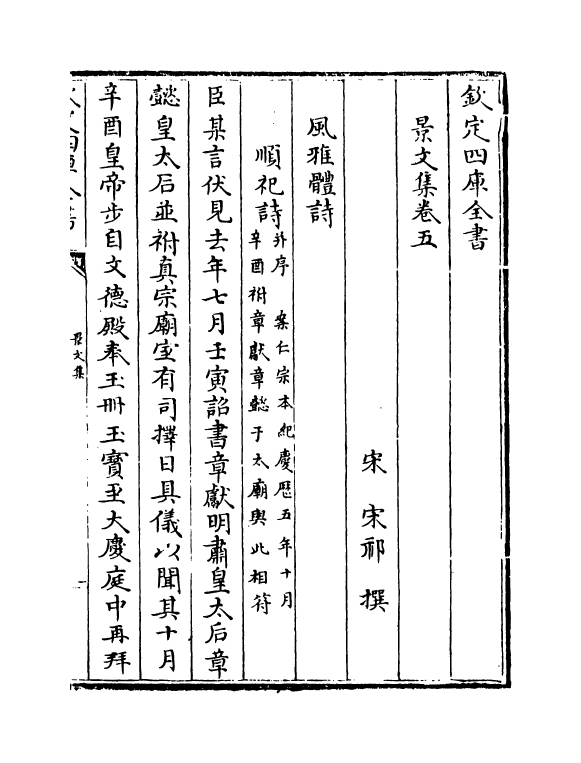 欽定四庫全書
景文集卷五
宋 宋祁 撰
風雅體詩
順祀詩并序 案仁宗本紀慶歴五年十月
辛酉祔章獻章懿于太廟與此相符
臣某言伏見去年七月壬寅詔書章獻明肅皇太后章
懿皇太后並祔真宗廟室有司擇日具儀以聞其十月
辛酉皇帝步自文德殿奉玉冊玉寶至大慶庭中再拜
景文集
一